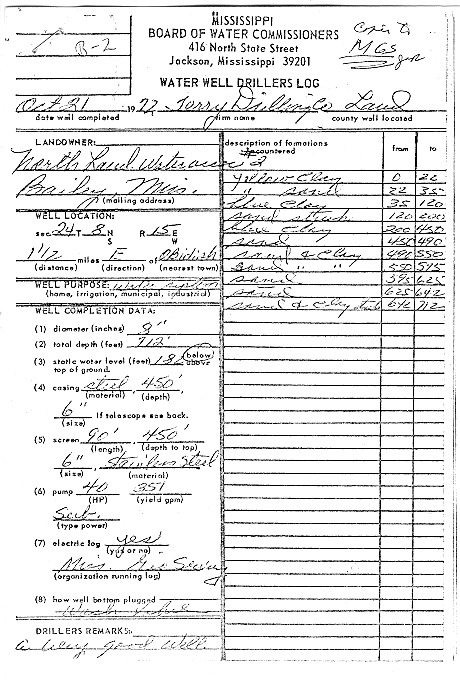 B-2
MISSISSIPPI
BOARD OF WATER COMMISSIONERS
416 North State Street
Jackson, Mississippi 39201
MGS
WATER WELL DRILLERS LOG
Oct 31 1977 Terry Drilling Co Laud
date well completed firm name county well located
LANDOWNER:
North Laud. Water
Bailey Miss.
(mailing address)
WELL LOCATION:
sec. 24 T 8 N S R 15 E W
1 1/2 miles E of
(distance) (direction) (nearest town)
WELL PURPOSE: Water
(home, irrigation, municipal, industrial)
WELL COMPLETION DATA:
(1) diameter (inches) 8"
(2) total depth (feet) 712'
(3) static water level (feet) 186 below above
top of ground.
(4) casing steel, 450'
(material) (depth)
6" If telescope see back.
(size)
(5) screen 90' 450'
(length) (depth to top)
6", Stainless Steel
(size) (material)
(6) pump 40 351
(HP) (yield gpm)
Sub.
(type power)
(7) electric log yes
(yes or no)
Miss. Geo Survey
(organization running log)
(8) how well bottom plugged
Wash
DRILLERS REMARKS:
a very good well.
description of formations encountered from to
Yellow Clay 0 22
" sand 22 35
blue Clay 35 120
sand streak 120 200
blue Clay 200 450
sand 450 490
sand & Clay 490 550
sand " " 550 595
sand 595 625
sand 625 642
sand & Clay 642 712